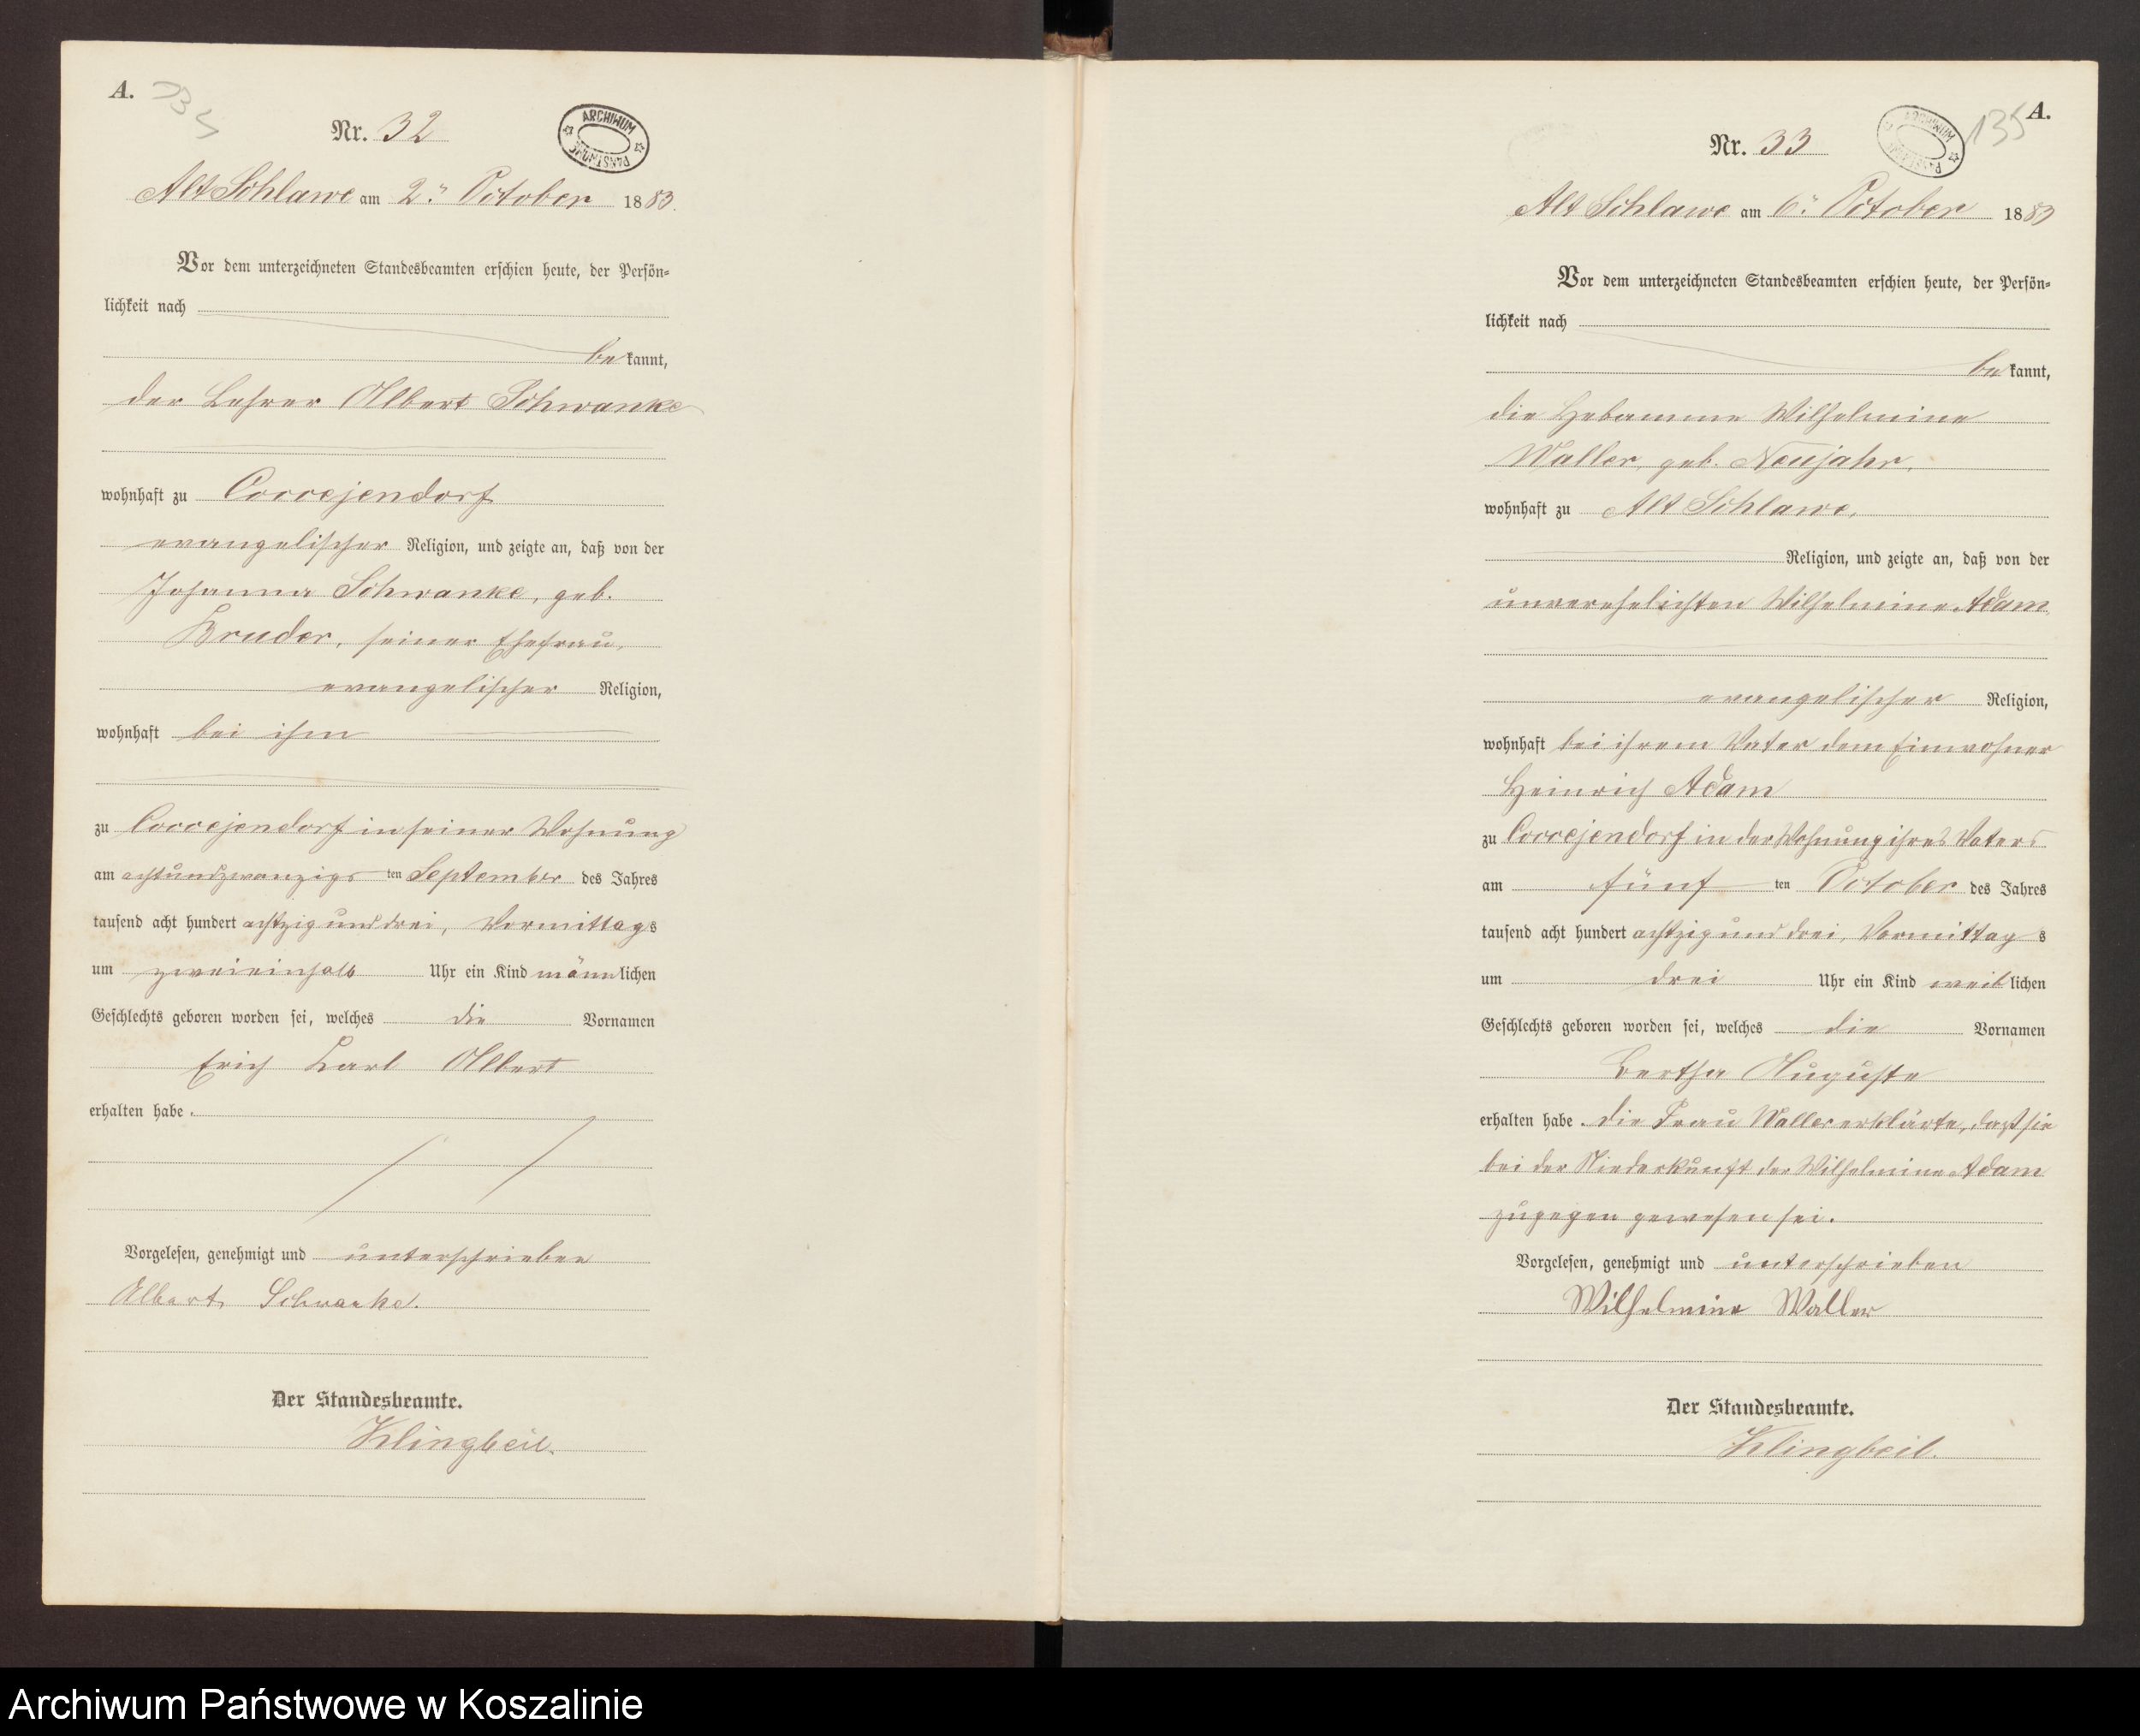 A.
Nr. 32
ARCHIWUM PAŃSTWOWE
Alt Schlawe am 2. October 1883.
Vor dem unterzeichneten Standesbeamten erschien heute, der Persön-
lichkeit nach
bekannt,
der Lehrer Albert Schwanke
wohnhaft zu Coccejendorf
evangelischer Religion, und zeigte an, daß von der
Johanna Schwanke, geb.
Kruder, seiner Ehefrau,
evangelischer Religion,
wohnhaft bei ihm
zu Coccejendorf in seiner Wohnung
am achtundzwanzigsten September des Jahres
tausend acht hundert achtzig und drei, Vormittags
um zweieinhalb Uhr ein Kind männlichen
Geschlechts geboren worden sei, welches die Vornamen
Erich Karl Albert
erhalten habe.
Vorgelesen, genehmigt und unterschrieben
Albert Schwanke.
Der Standesbeamte.
Klingbeil.
135
A.
Nr. 33
ARCHIWUM PAŃSTWOWE
Alt Schlawe am 6. October 1883
Vor dem unterzeichneten Standesbeamten erschien heute, der Persön-
lichkeit nach
bekannt,
die Hebamme Wilhelmine
Waller, geb. Neujahr,
wohnhaft zu Alt Schlawe,
Religion, und zeigte an, daß von der
unverehelichten Wilhelmine Adam
evangelischer Religion,
wohnhaft bei ihrem Vater dem Einwohner
Heinrich Adam
zu Coccejendorf in der Wohnung ihres Vaters
am fünften October des Jahres
tausend acht hundert achtzig und drei, Vormittags
um drei Uhr ein Kind weiblichen
Geschlechts geboren worden sei, welches die Vornamen
Bertha Auguste
erhalten habe. Die Frau Waller erklärte, daß sie
bei der Niederkunft der Wilhelmine Adam
zugegen gewesen sei.
Vorgelesen, genehmigt und unterschrieben
Wilhelmine Waller
Der Standesbeamte.
Klingbeil.
Archiwum Państwowe w Koszalinie